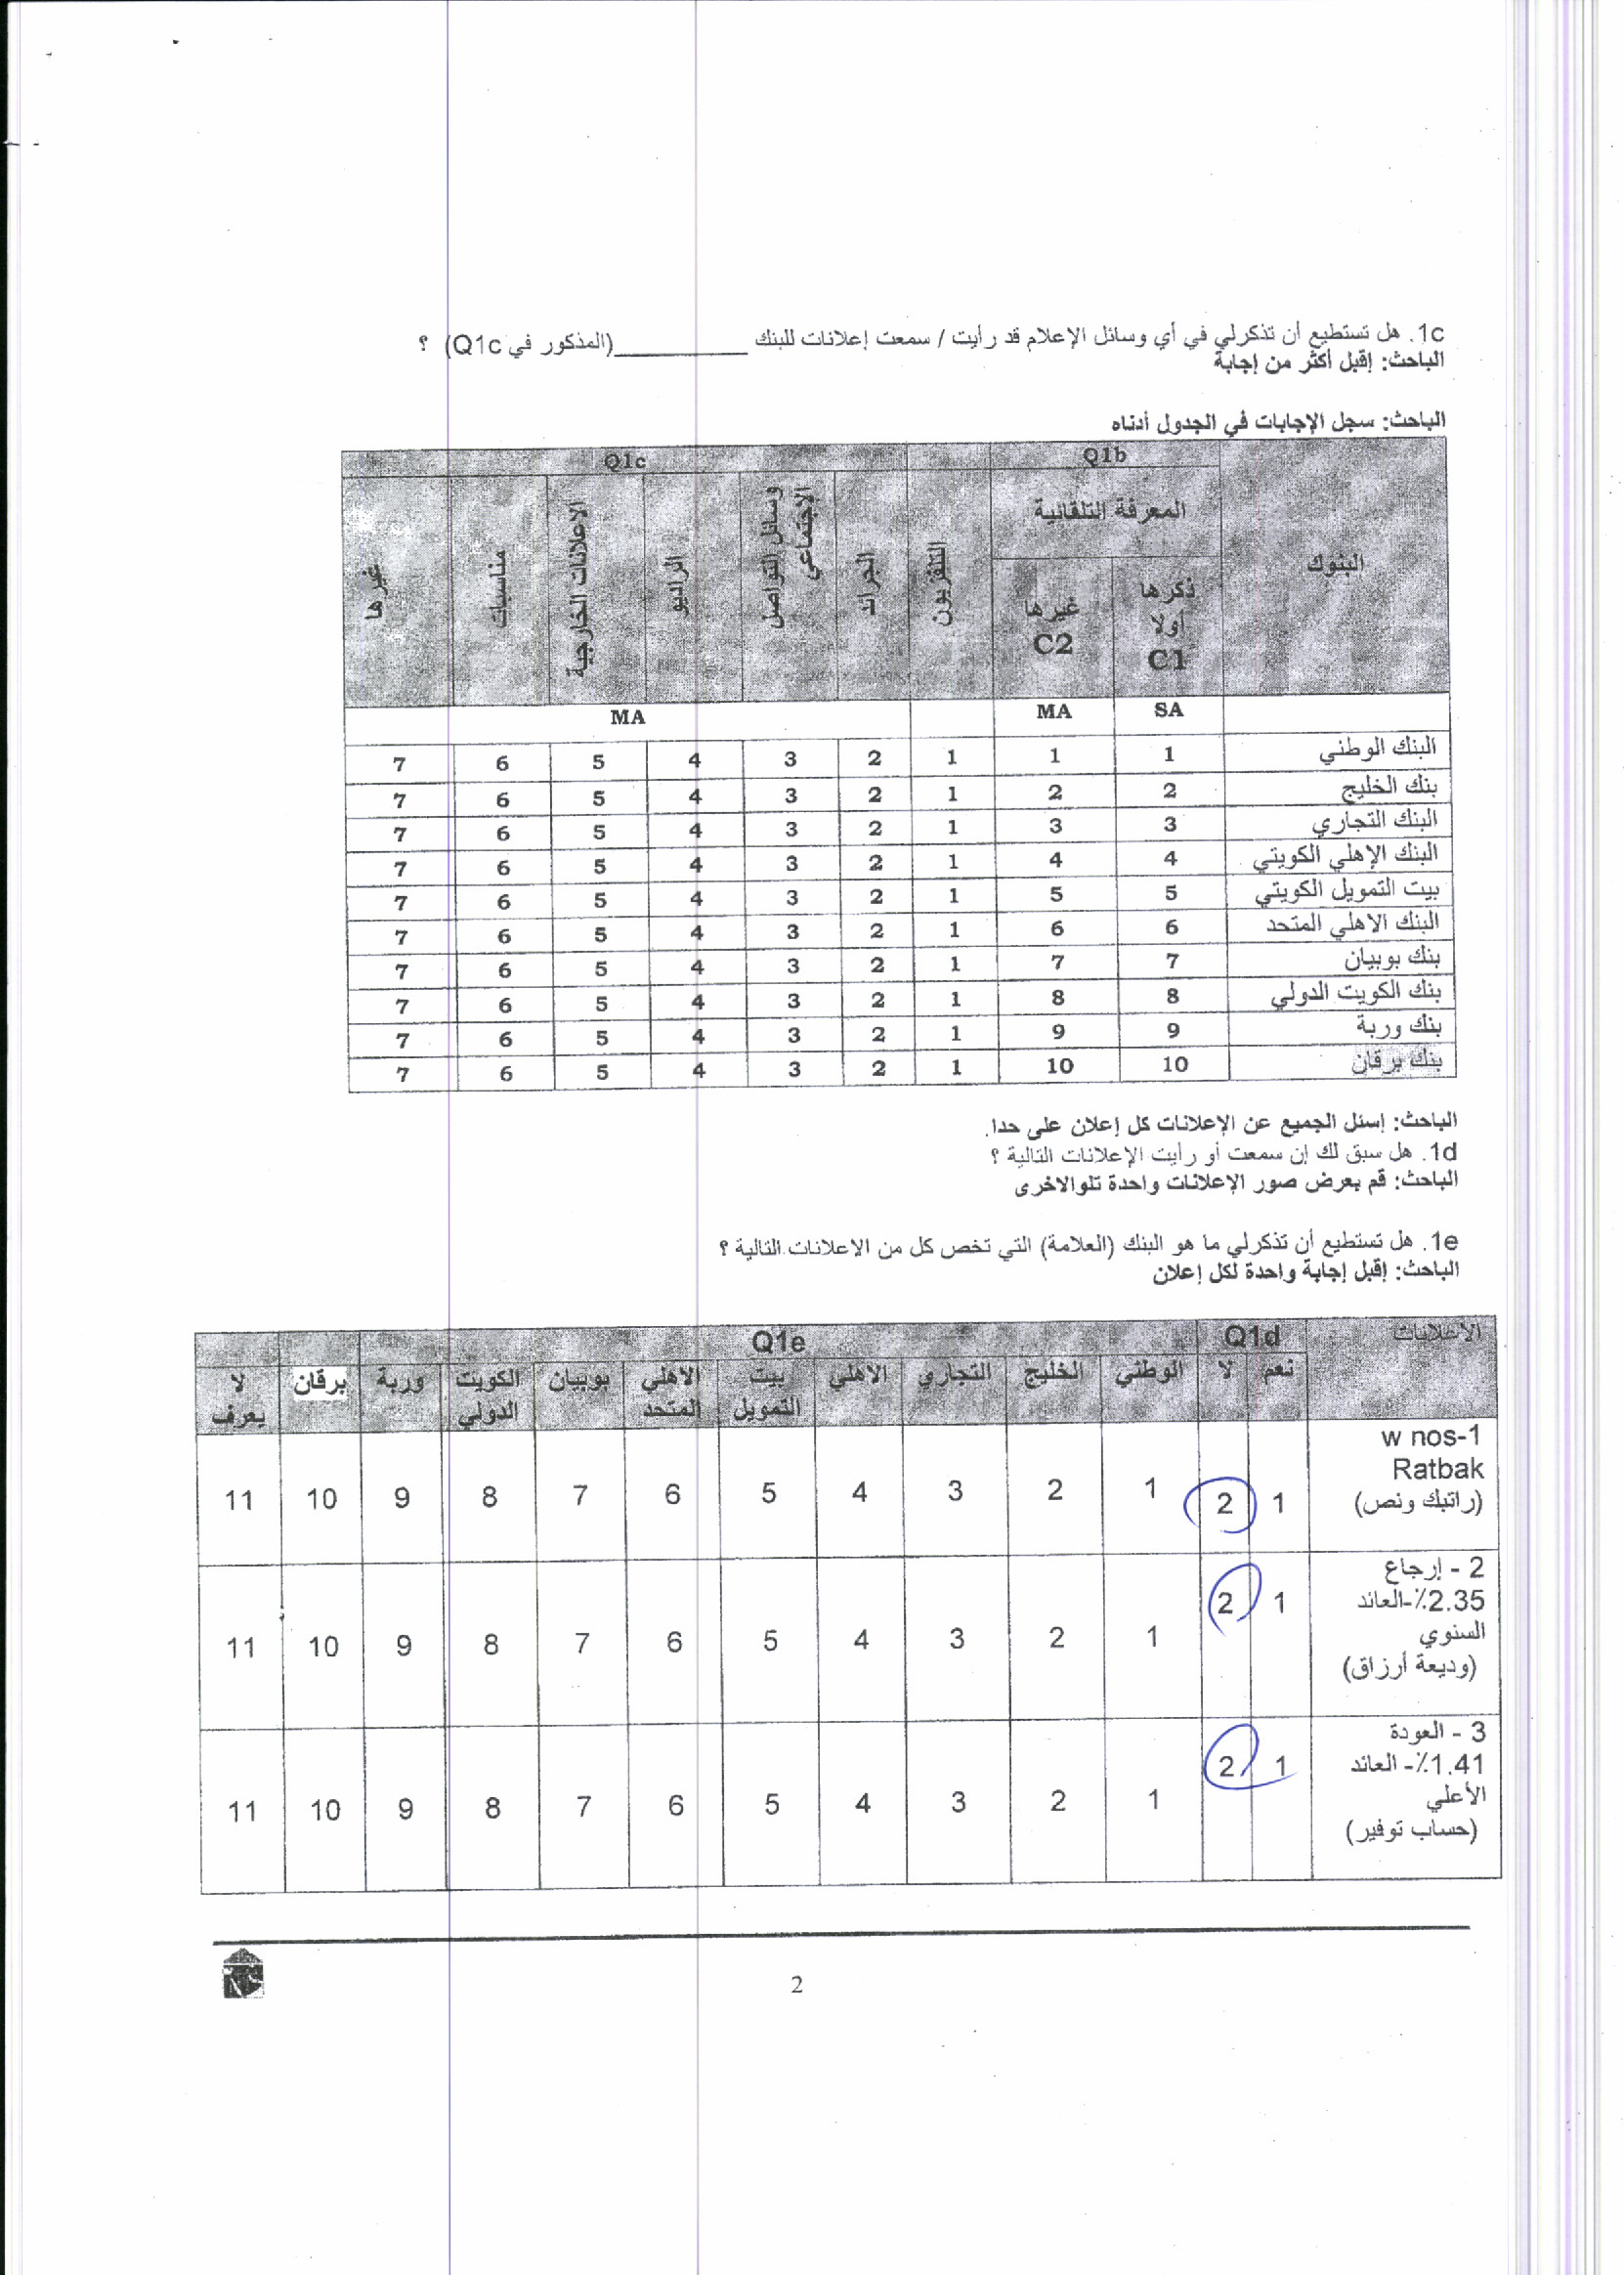 1c. هل تستطيع أن تذكرلي في أي وسائل الإعلام قد رأيت / سمعت إعلانات للبنك __________(المذكور في Q1c) ؟
الباحث: إقبل أكثر من إجابة
الباحث: سجل الإجابات في الجدول أدناه
البنوك Q1b Q1c
المعرفة التلقائية
ذكرها أولا C1 غيرها C2 التلفزيون الجرائد وسائل التواصل الإجتماعي الراديو الاعلانات الخارجية مناسبات غيرها
SA MA MA
البنك الوطني 1 1 1 2 3 4 5 6 7
بنك الخليج 2 2 1 2 3 4 5 6 7
البنك التجاري 3 3 1 2 3 4 5 6 7
البنك الإهلي الكويتي 4 4 1 2 3 4 5 6 7
بيت التمويل الكويتي 5 5 1 2 3 4 5 6 7
البنك الاهلي المتحد 6 6 1 2 3 4 5 6 7
بنك بوبيان 7 7 1 2 3 4 5 6 7
بنك الكويت الدولي 8 8 1 2 3 4 5 6 7
بنك وربة 9 9 1 2 3 4 5 6 7
بنك برقان 10 10 1 2 3 4 5 6 7
الباحث: إسئل الجميع عن الإعلانات كل إعلان على حدا.
1d. هل سبق لك إن سمعت أو رأيت الإعلانات التالية ؟
الباحث: قم بعرض صور الإعلانات واحدة تلوالاخرى
1e. هل تستطيع أن تذكرلي ما هو البنك (العلامة) التي تخص كل من الاعلانات التالية ؟
الباحث: إقبل إجابة واحدة لكل إعلان
الاعلانات Q1d Q1e
نعم لا الوطني الخليج التجاري الاهلي بيت التمويل الاهلي المتحد بوبيان الكويت الدولي وربة برقان لا يعرف
w nos-1
Ratbak
(راتبك ونص)
1 2 1 2 3 4 5 6 7 8 9 10 11
2 - إرجاع
2.35٪-العائد
السنوي
(وديعة أرزاق)
1 2 1 2 3 4 5 6 7 8 9 10 11
3 - العودة
1.41٪- العائد
الأعلي
(حساب توفير)
1 2 1 2 3 4 5 6 7 8 9 10 11
2